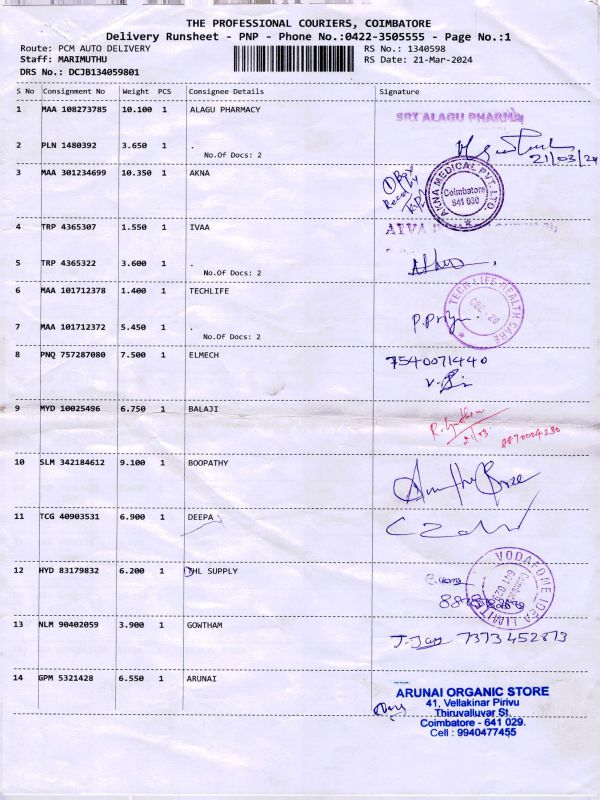 THE PROFESSIONAL COURIERS, COIMBATORE
Delivery Runsheet - PNP - Phone No.:0422-3505555 - Page No.:1
Route: PCM AUTO DELIVERY RS No.: 1340598
Staff: MARIMUTHU RS Date: 21-Mar-2024
DRS No.: DCJB134059801
S No Consignment No Weight PCS Consignee Details Signature
1 MAA 108273785 10.100 1 ALAGU PHARMACY
SRI ALAGU PHARMA
2 PLN 1480392 3.650 1 .
No.Of Docs: 2
21/03/24
3 MAA 301234699 10.350 1 AKNA
① Box
AKNA MEDICAL PVT. LTD.
Coimbatore
641 030
4 TRP 4365307 1.550 1 IVAA
5 TRP 4365322 3.600 1 .
No.Of Docs: 2
6 MAA 101712378 1.400 1 TECHLIFE
TECH LIFE HEALTH CARE
CBE - 29
7 MAA 101712372 5.450 1 .
No.Of Docs: 2
P. Priya
8 PNQ 757287080 7.500 1 ELMECH
7540071440
9 MYD 10025496 6.750 1 BALAJI
21/03
8870004230
10 SLM 342184612 9.100 1 BOOPATHY
11 TCG 40903531 6.900 1 DEEPA
12 HYD 83179832 6.200 1 VHL SUPPLY
VODAFONE IDEA LIMITED
Coimbatore
641 029
13 NLM 90402059 3.900 1 GOWTHAM
J. Jay 7373452873
14 GPM 5321428 6.550 1 ARUNAI
ARUNAI ORGANIC STORE
41, Vellakinar Pirivu
Thiruvalluvar St.
Coimbatore - 641 029.
Cell : 9940477455